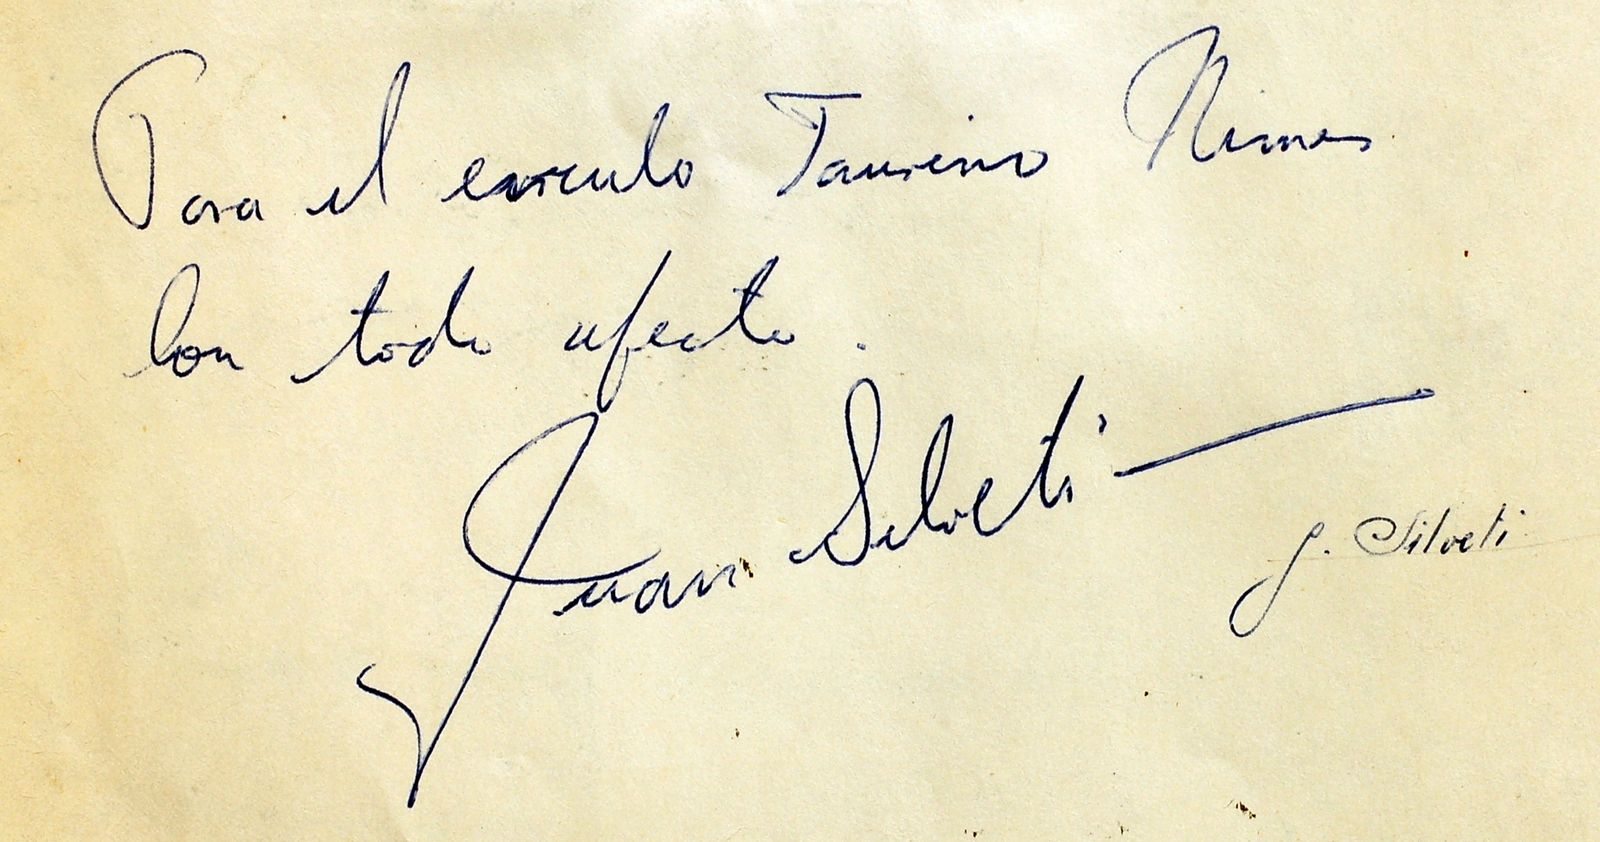 Para el circulo Taurino Nimes
Con todo afecto.
Juan Silveti
J. Silveti